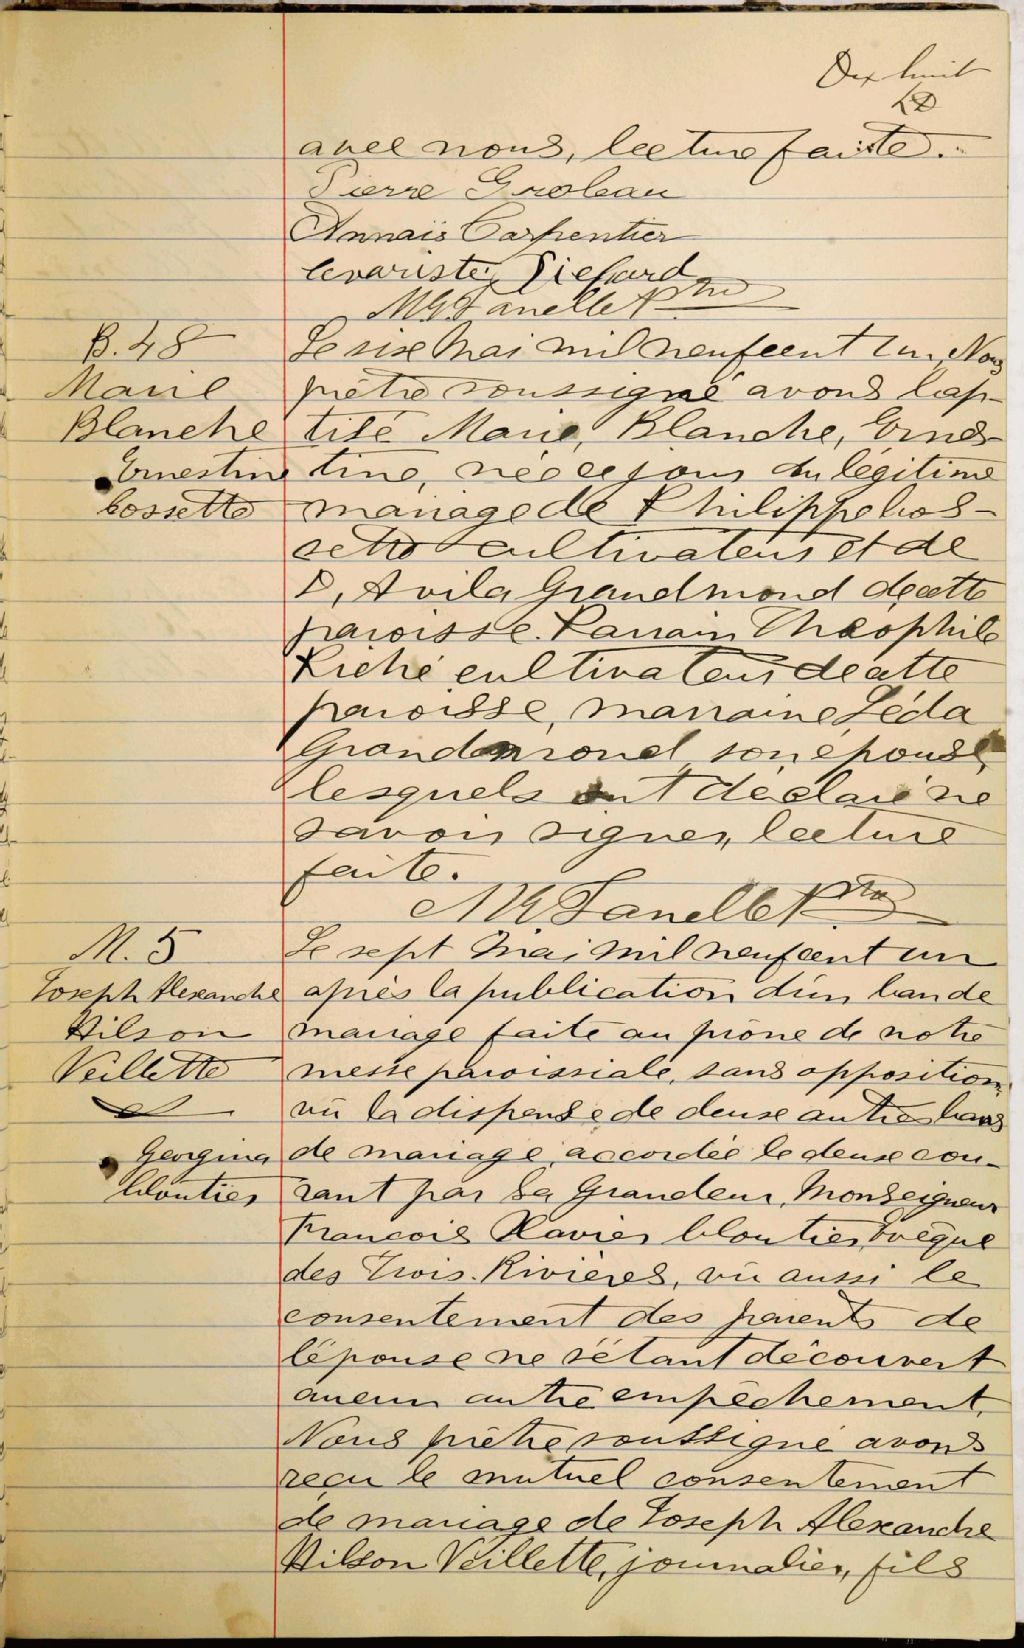 Dix huit
avec nous, lecture faite.
Pierre Groleau
Annaïs Carpentier
Evariste Piché
Ptre
B. 48
Marie
Blanche
Ernestine
Cossette
Le six Mai mil neuf cent un, Nous
prêtre soussigné avons bap-
tisé Marie, Blanche, Ernes-
tine, née ce jour du légitime
mariage de Philippe Cos-
sette cultivateur et de
D, Avila Grandmond de cette
paroisse. Parrain Théophile
Riché cultivateur de cette
paroisse, marraine Léda
Grandmond son épouse,
lesquels ont déclaré ne
savoir signer, lecture
faite.
Ptre
M. 5
Joseph Alexandre
Wilson
Veillette
et
Georgina
Cloutier
Le sept Mai mil neuf cent un
après la publication d'un ban de
mariage faite au prône de notre
messe paroissiale, sans opposition,
vu la dispense de deux autres bans
de mariage, accordée le deux cou-
rant par Sa Grandeur, Monseigneur
François Xavier Cloutier, Évêque
des Trois-Rivières, vu aussi le
consentement des parents de
l'épouse ne s'étant découvert
aucun autre empêchement,
Nous prêtre soussigné avons
reçu le mutuel consentement
de mariage de Joseph Alexandre
Wilson Veillette, journalier, fils